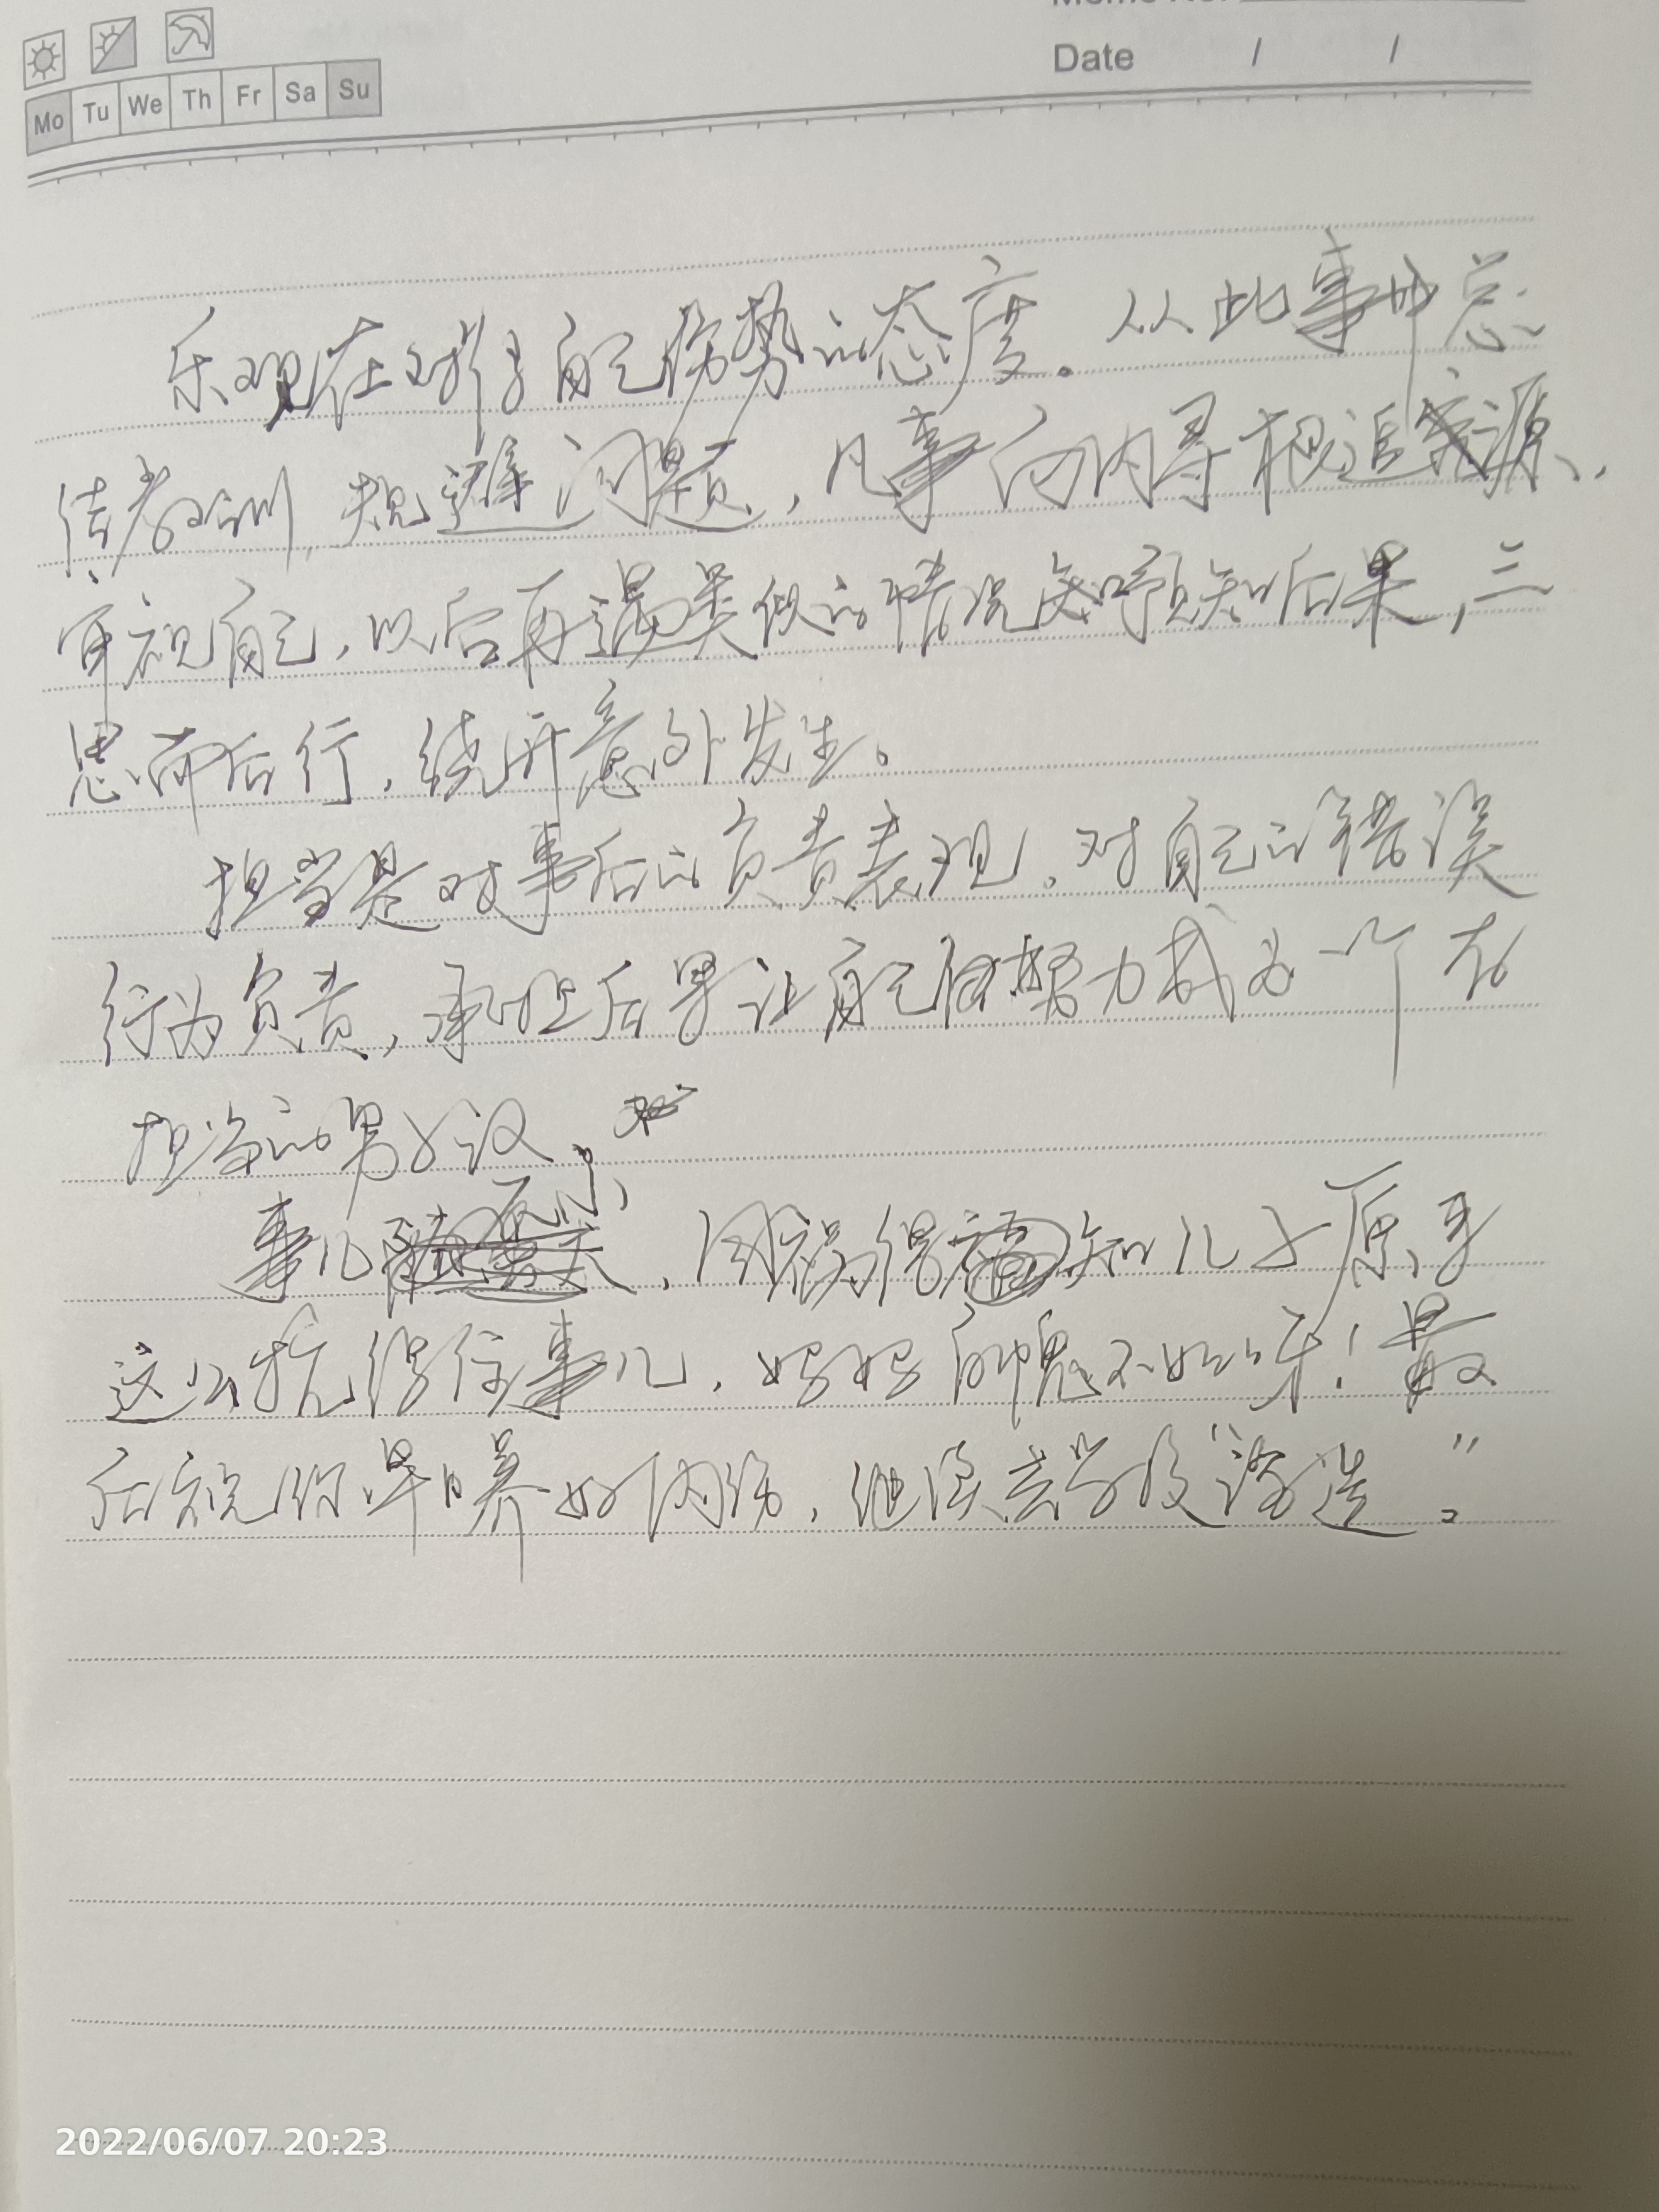 Date / /
Mo Tu We Th Fr Sa Su
乐观在对待自己伤势的态度。从此事中总
结教训,规避问题,凡事向内寻根追源,
审视自己,以后再遇类似的情况先预知后果,三
思而后行,绕开意外发生。
担当是对事后的负责表现,对自己的错误
行为负责,承担后果让自己努力成为一个有
担当的男子汉。
事儿不小,因祸得福知儿子原来
这么扛得住事儿,妈妈自愧不如呀!最
后祝你早日养好内伤,继续去学校"深造"。
2022/06/07 20:23